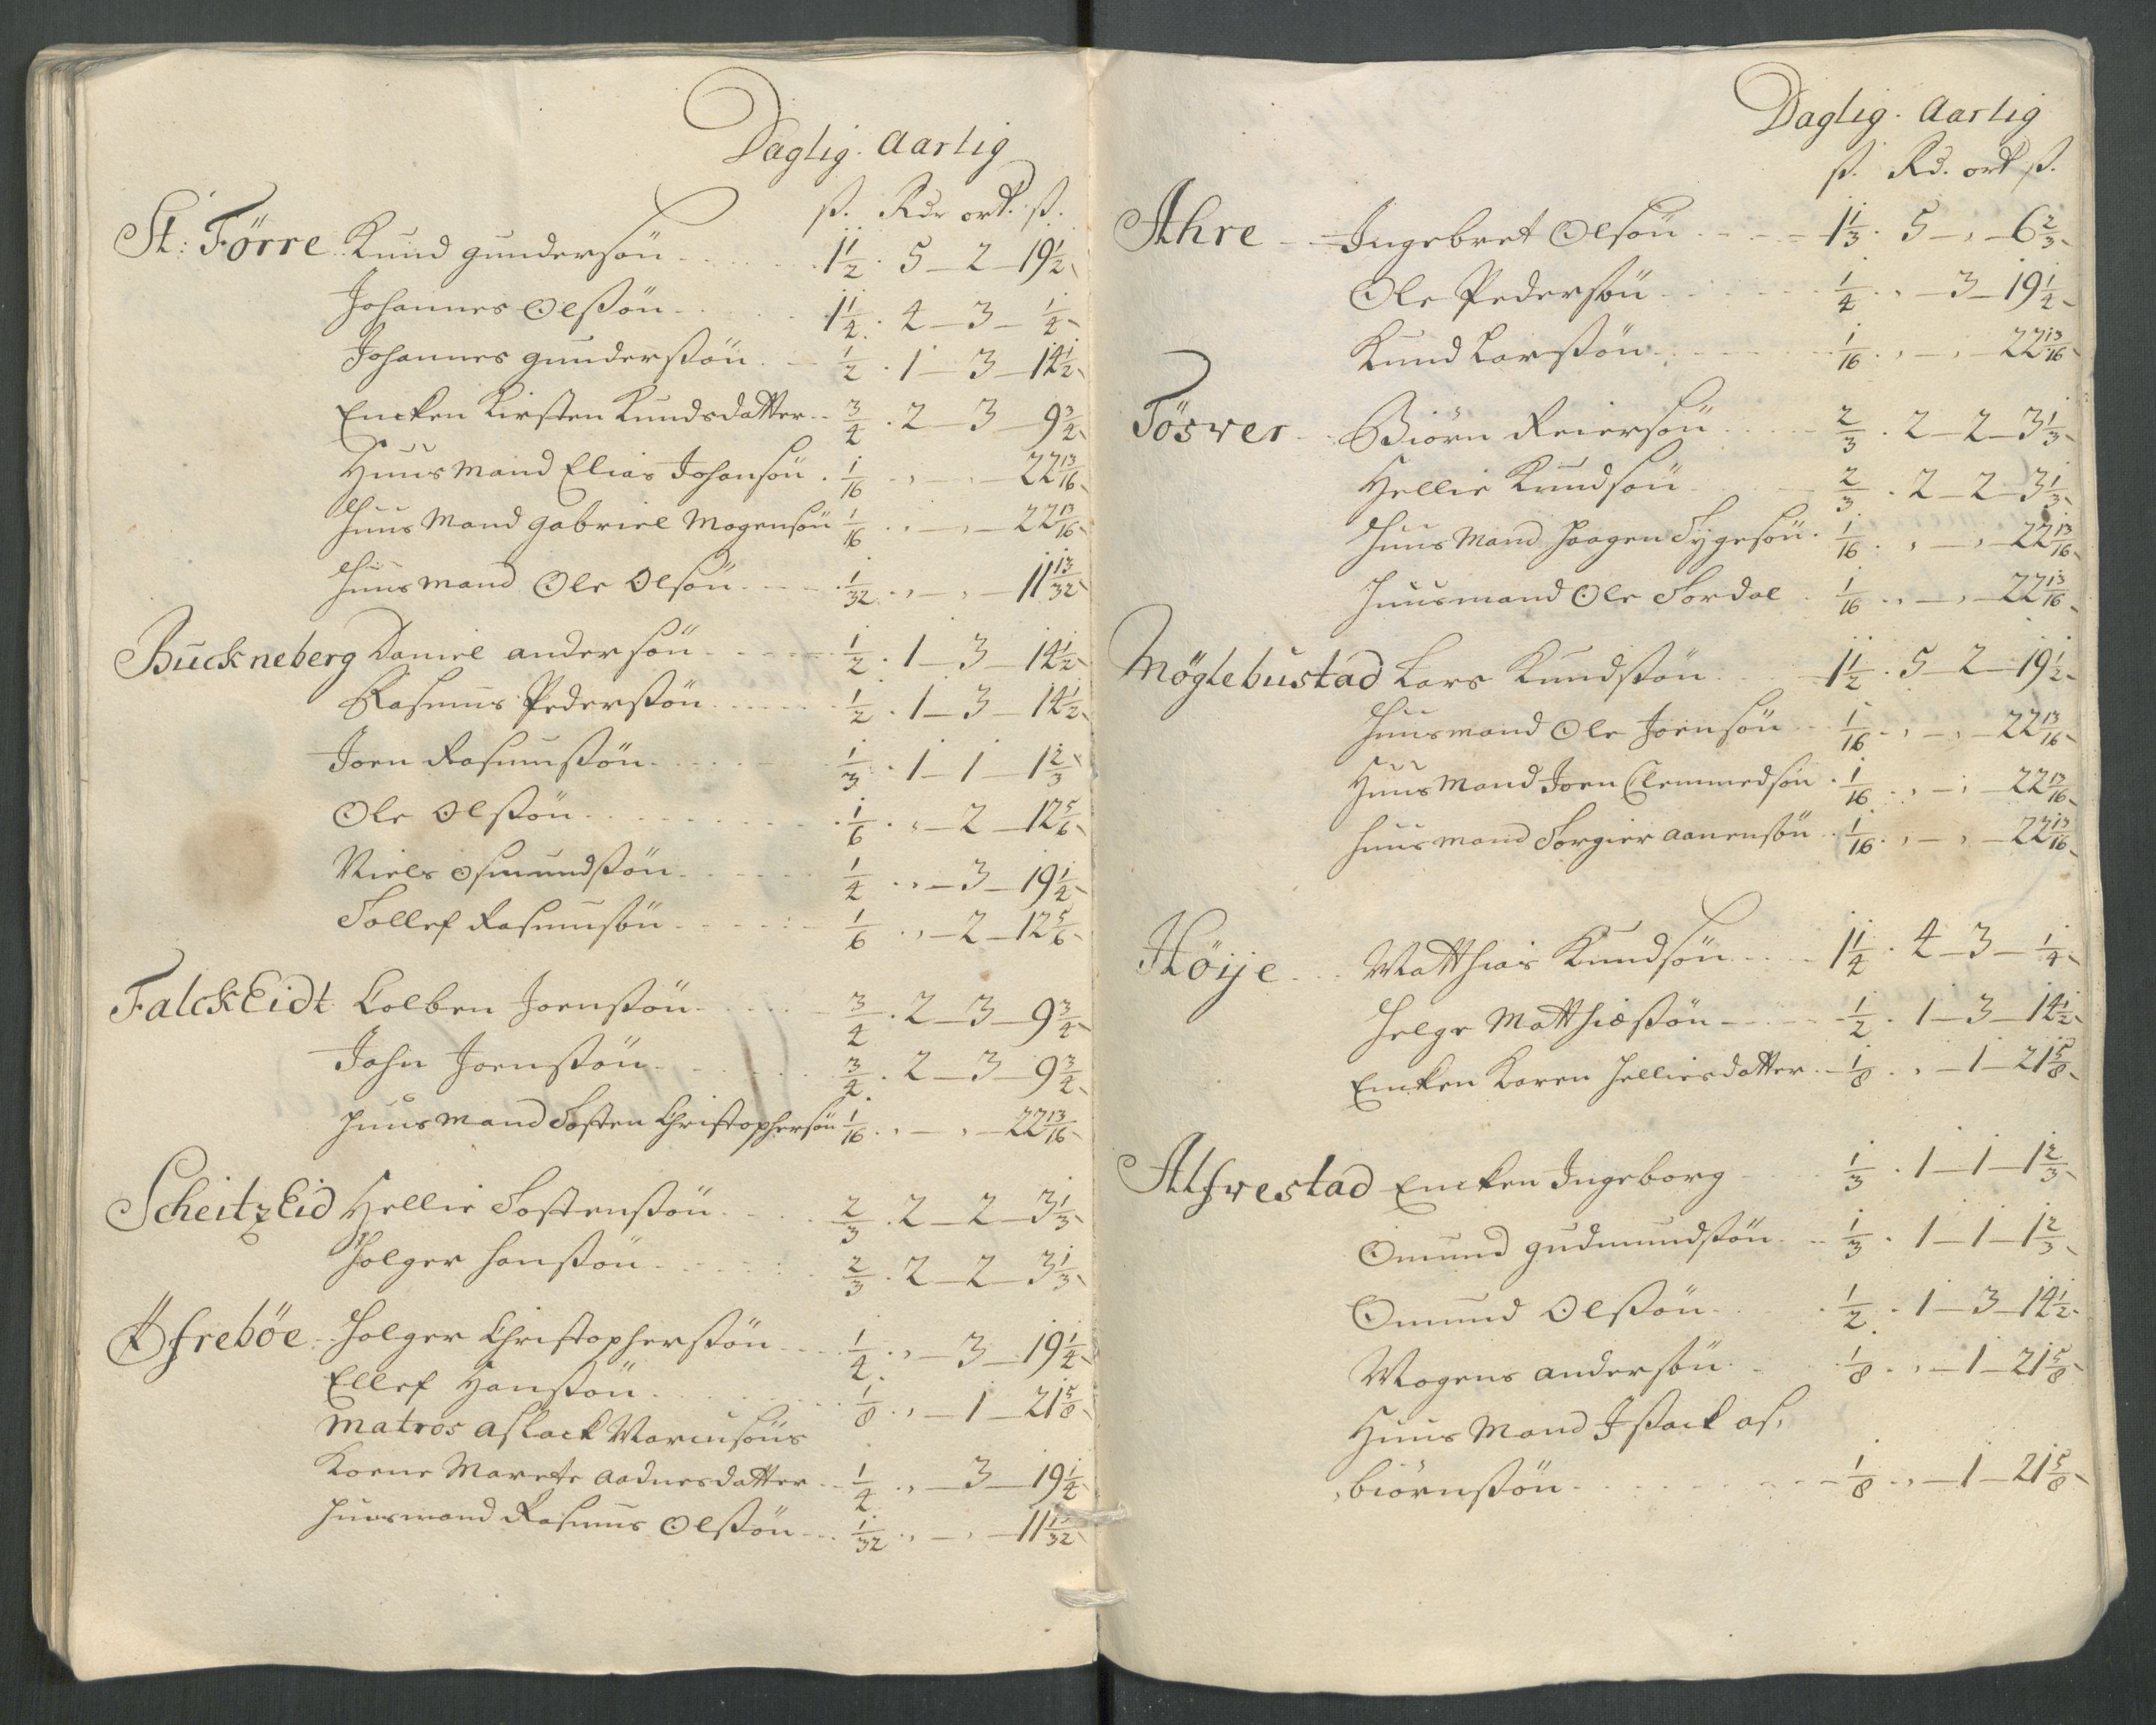 Daglig. Aarlig
ß. Rdr ort. ß.
St: Förre Knud Gundersön 1 1/2. 5 – 2 – 19 1/2
Johannes Olßön 1 1/4. 4 – 3 – 1/4
Johannes Gunderßön 1/2. 1 – 3 – 14 1/2
Encken Kirsten Knudsdatter 3/4. 2 – 3 – 9 3/4
Huusmand Elias Johansön 1/16. , – , – 22 13/16
Huus Mand Gabriel Mogensön 1/16. , – , – 22 13/16
Huusmand Ole Olsön 1/32. , – , – 11 13/32
Buckneberg Daniel Andersön 1/2. 1 – 3 – 14 1/2
Rasmus Pederßön 1/2. 1 – 3 – 14 1/2
Joen Rasmußön 1/3. 1 – 1 – 1 2/3
Ole Olßön 1/6. , – 2 – 12 5/6
Niels Osmundßön 1/4. , – 3 – 19 1/4
Tollef Rasmusön 1/6. , – 2 – 12 5/6
FalckEidt Colben Joenßön 3/4. 2 – 3 – 9 3/4
John Joenßön 3/4. 2 – 3 – 9 3/4
Huusmand Tosten Christophersön 1/16. , – , – 22 13/16
ScheitzEid Hellie Tostenßön 2/3. 2 – 2 – 3 1/3
Holger Hanßön 2/3. 2 – 2 – 3 1/3
Öfreböe Holger Christopherßön 1/4. , – 3 – 19 1/4
Ellef Hanßön 1/8. , – 1 – 21 5/8
Matros Aslack Marcusöns
Koene Marete Aadnesdatter 1/4. , – 3 – 19 1/4
Huusmand Rasmus Olßön 1/32. , – , – 11 13/32
Daglig. Aarlig
ß. Rd. ort ß.
Ahre Ingebret Olsön 1 1/3. 5 – , – 6 2/3
Ole Pedersön 1/4. , – 3 – 19 1/4
Knud Larßön 1/16. , – , – 22 13/16
Fösver Biörn Reiersön 2/3. 2 – 2 – 3 1/3
Hellie Knudsön 2/3. 2 – 2 – 3 1/3
Huus Mand Haagen Tygesön 1/16. , – , – 22 13/16
Huusmand Ole Tordal 1/16. , – , – 22 13/16
Möglebustad Lars Knudßön 1 1/2. 5 – 2 – 19 1/2
Huusmand Ole Joensön 1/16. , – , – 22 13/16
Huus Mand Joen Clemmedsön 1/16. , – , – 22 13/16
Huusmand Torgier Aanensön 1/16. , – , – 22 13/16
Höije Matthias Knudsön 1 1/4. 4 – 3 – 1/4
Helge Matthiæßön 1/2. 1 – 3 – 14 1/2
Encken Karen Helliesdatter 1/8. , – 1 – 21 5/8
Alfvestad Encken Ingeborg 1/3. 1 – 1 – 1 2/3
Omund Gudmundßön 1/3. 1 – 1 – 1 2/3
Omund Olßön 1/2. 1 – 3 – 14 1/2
Mogens Andersön 1/8. , – 1 – 21 5/8
Huus Mand Ißack As,
,biörnßön 1/8. , – 1 – 21 5/8